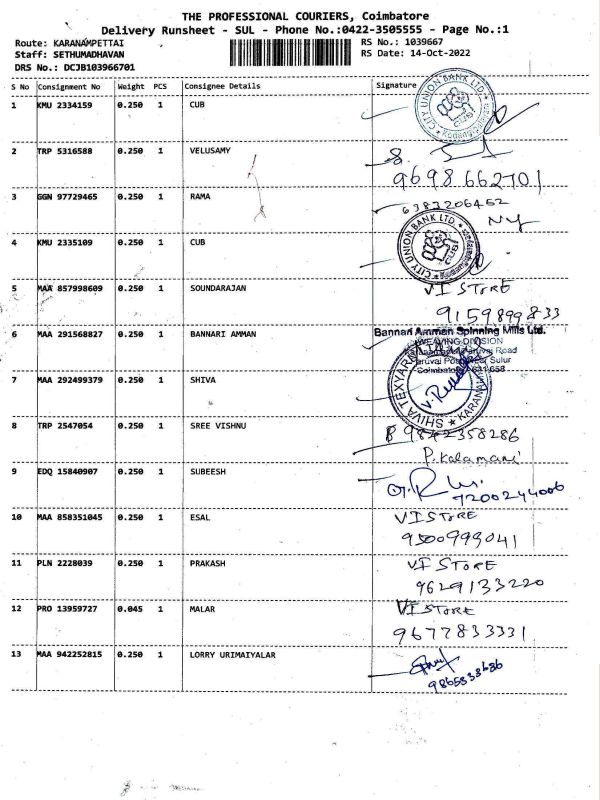 THE PROFESSIONAL COURIERS, Coimbatore
Delivery Runsheet - SUL - Phone No.:0422-3505555 - Page No.:1
Route: KARANAMPETTAI RS No.: 1039667
Staff: SETHUMADHAVAN RS Date: 14-Oct-2022
DRS No.: DCJB103966701
S No Consignment No Weight PCS Consignee Details Signature
1 KMU 2334159 0.250 1 CUB
CITY UNION BANK LTD.
CUB
2 TRP 5316588 0.250 1 VELUSAMY
9698662701
3 GGN 97729465 0.250 1 RAMA
6383206462
4 KMU 2335109 0.250 1 CUB
CITY UNION BANK LTD.
CUB
5 MAA 857998609 0.250 1 SOUNDARAJAN VI STORE
9159899833
6 MAA 291568827 0.250 1 BANNARI AMMAN Bannari Amman Spinning Mills Ltd.
WEAVING DIVISION
Road
Sulur
Coimbatore 641 658
7 MAA 292499379 0.250 1 SHIVA
SHIVA TEXYARN
8 TRP 2547054 0.250 1 SREE VISHNU 9842358286
P. Kalamani
9 EDQ 15840907 0.250 1 SUBEESH
7200244006
10 MAA 858351045 0.250 1 ESAL VI STORE
9500999041
11 PLN 2228039 0.250 1 PRAKASH VI STORE
9629133220
12 PRO 13959727 0.045 1 MALAR VI STORE
9677833331
13 MAA 942252815 0.250 1 LORRY URIMAIYALAR